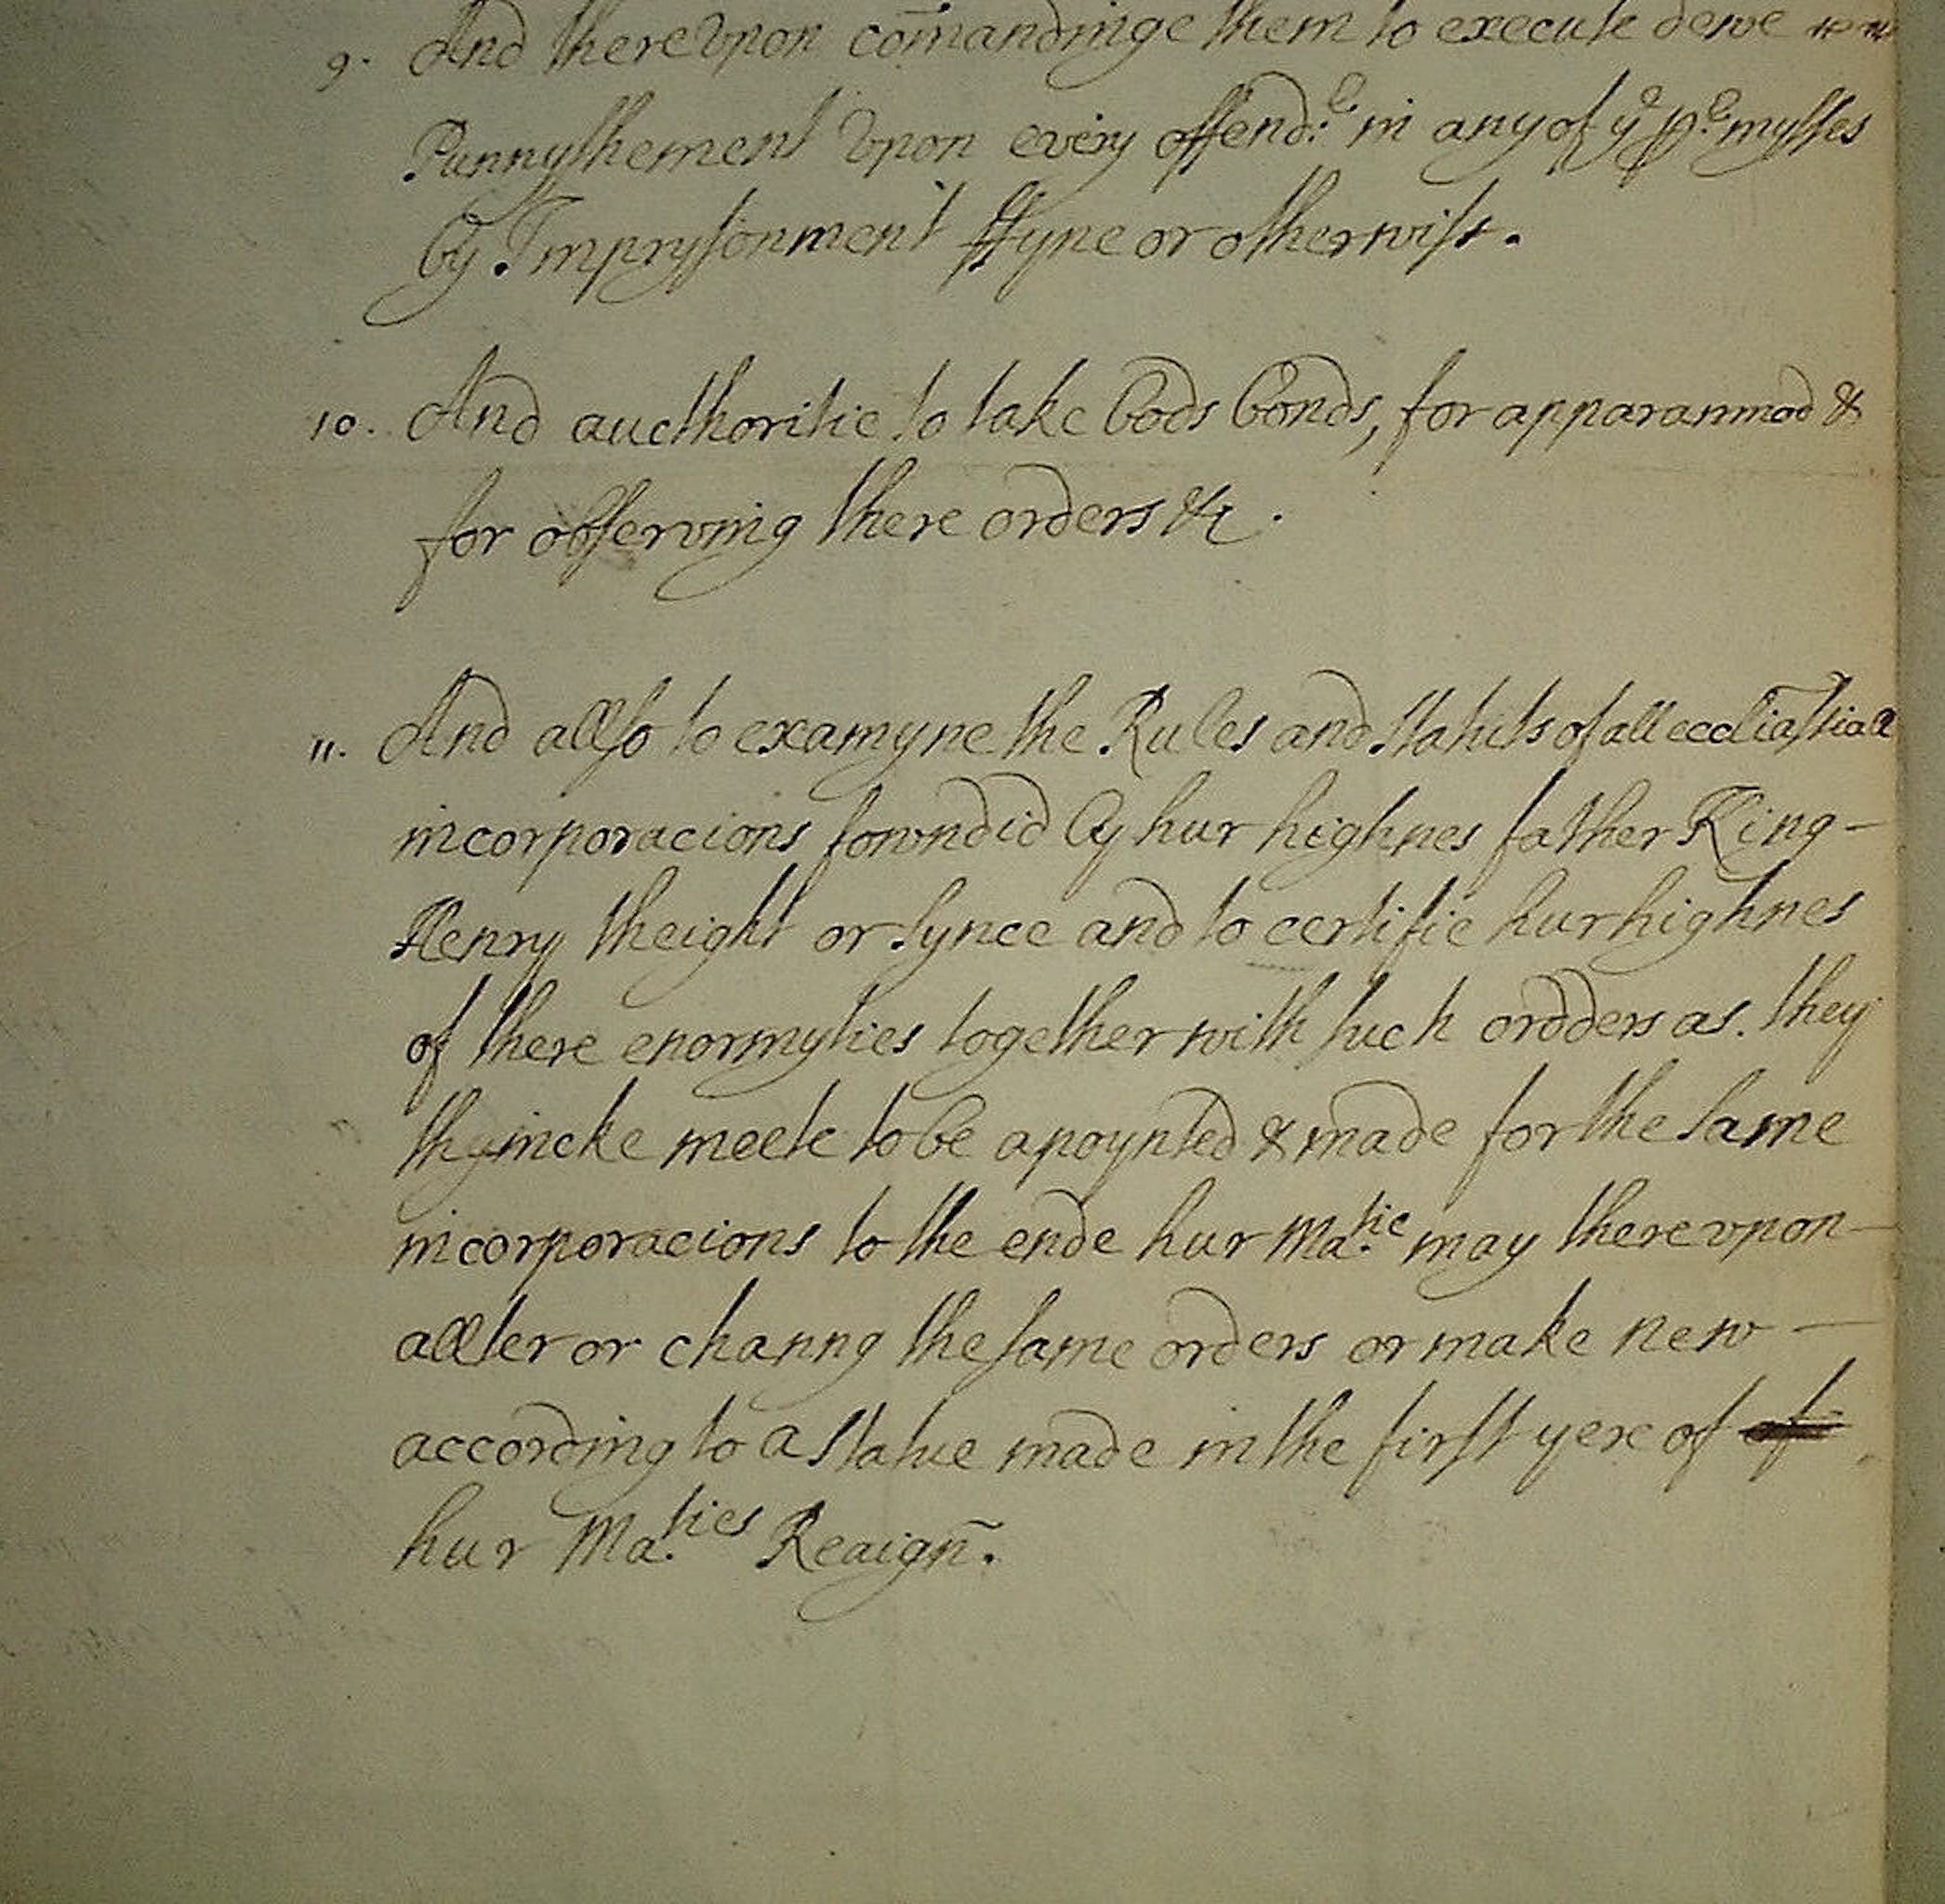 9. And thereupon com̄andinge them to execute dewe
Punnyshement vpon every offend:e in any of ye p:emysses
by Imprysonment ffyne or otherwise.
10. And aucthoritie to take bods bonds, for apparanmad &
for observing there orders &c.
11. And allso to examyne the Rules and statuts of all eccliasticall
incorporacions fowndid by hur highnes father King –
Henry theight or synce and to certifie hur highnes
of there enormyties together with such ordders as. they
thyincke meete to be apoynted & made for the same
incorporacions to the ende hur Ma.tie may there vpon –
allter or channg the same orders or make new –
according to a statue made in the first yere of of
hur Ma.ties Reaigñ.